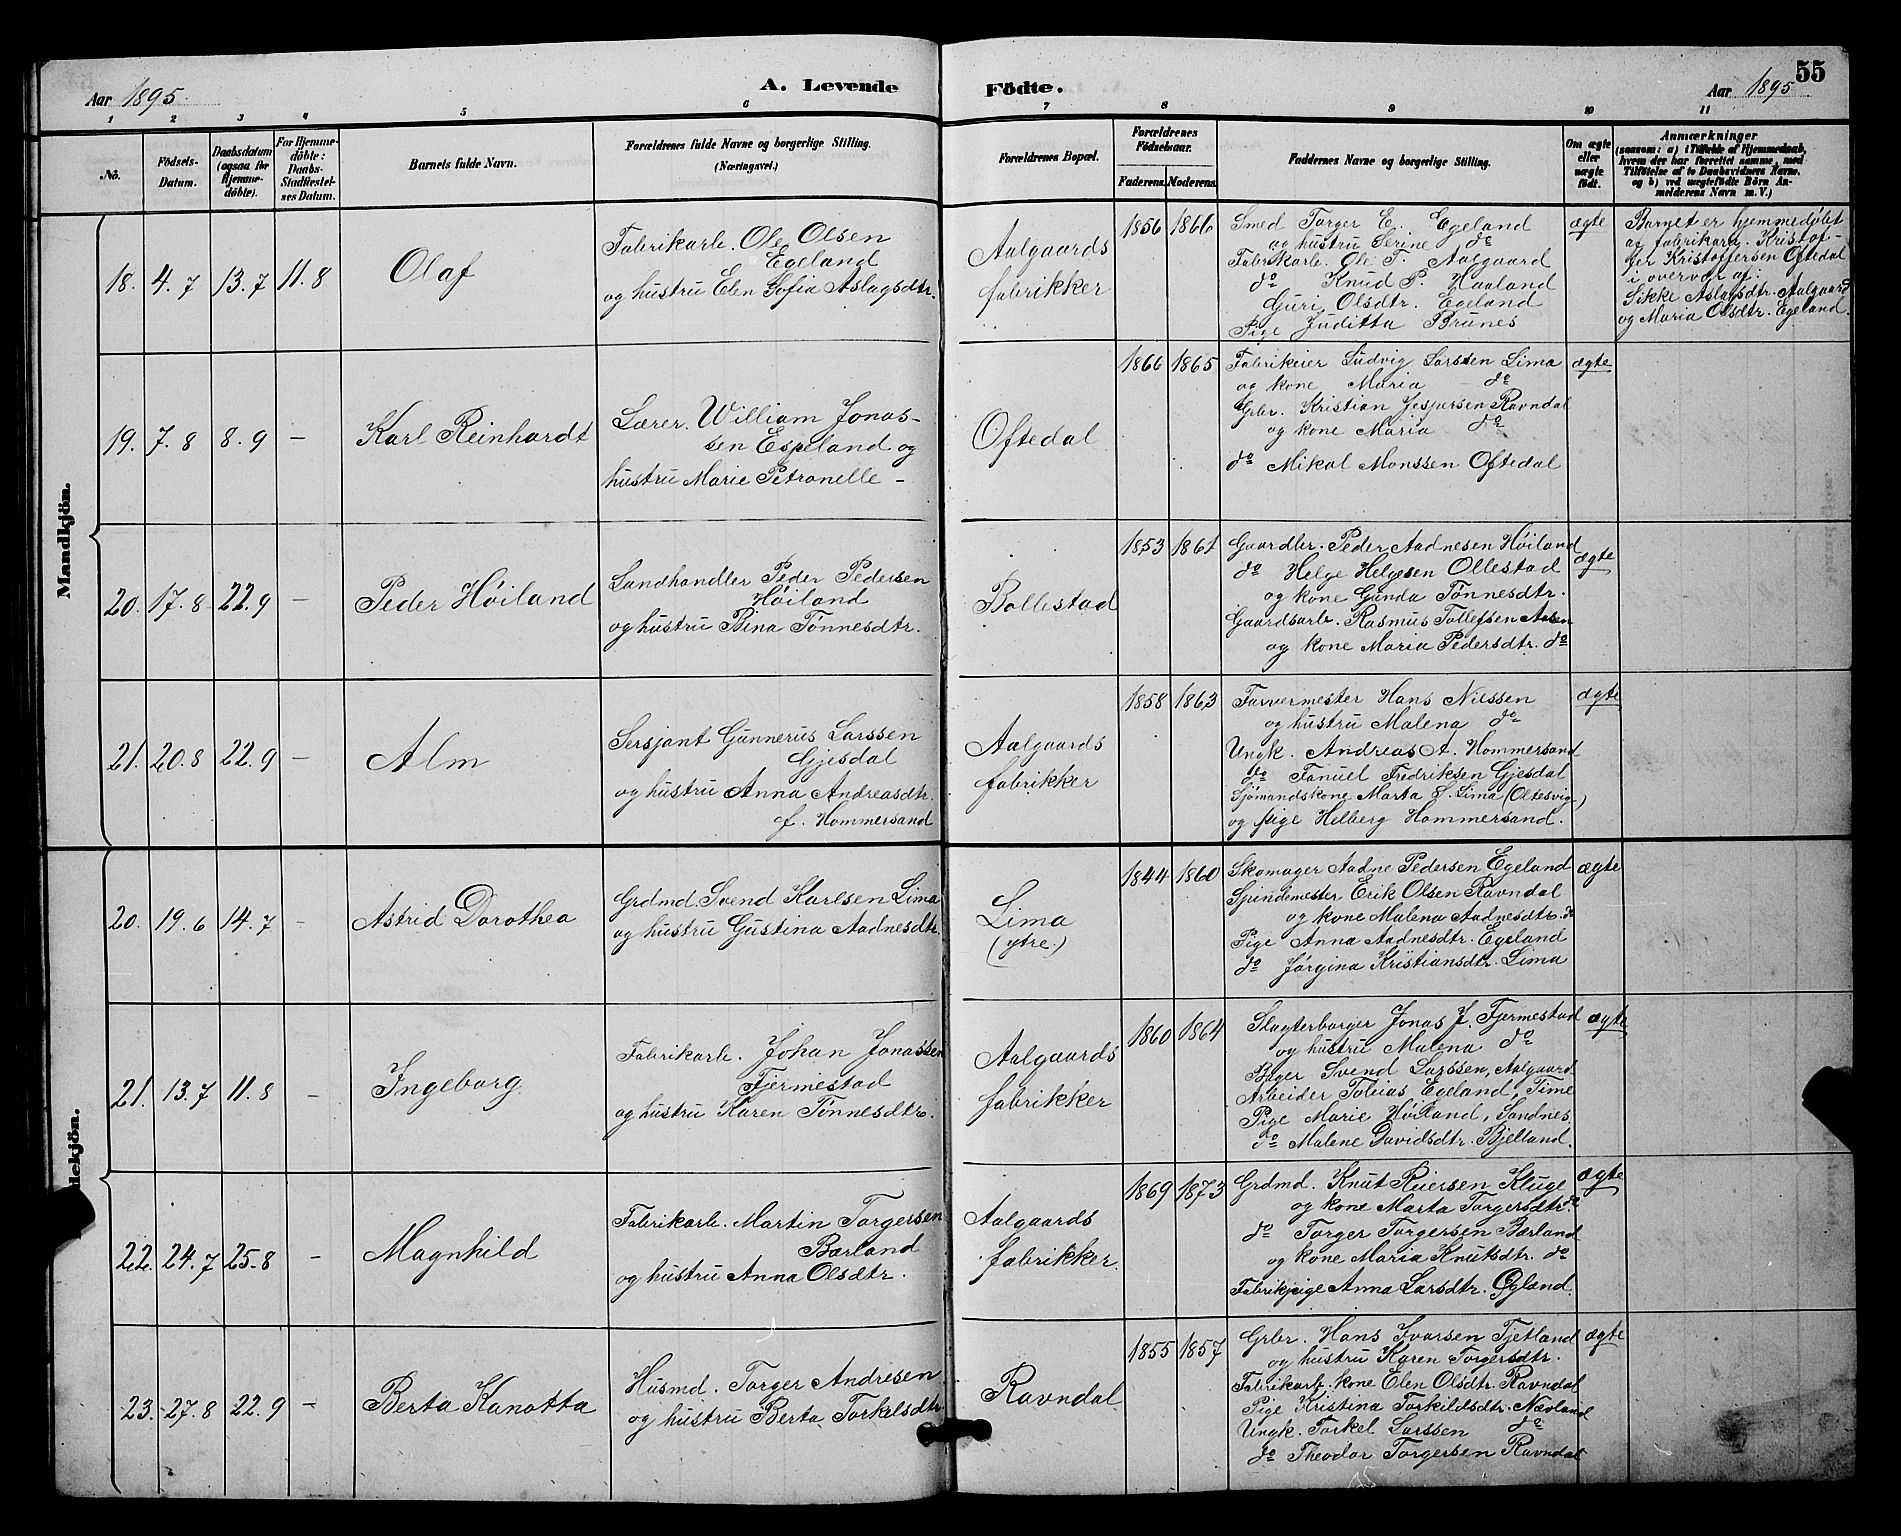 Aar 1895.
A. Levende Födte.
Aar 1895
55
1 2 3 4 5 6 7 8 9 10 11
No.
Födsels-
Datum.
Daabsdatum
(ogsaa for
Hjemme-
döbte).
For Hjemme-
döbte:
Daabs-
Stadfæstel-
ses Datum.
Barnets fulde Navn.
Forældrenes fulde Navne og borgerlige Stilling.
(Næringsvei.)
Forældrenes Bopæl.
Forældrenes
Födselsaar.
Faderens. Moderens.
Faddernes Navne og borgerlige Stilling.
Om ægte
eller
uægte
födt.
Anmærkninger
(saasom: a) i Tilfælde af Hjemmedaab,
hvem der har forrettet samme, med
Tilföielse af to Daabsvidners Navne.
og b) ved uægtefödte Börn An-
melderens Navn m. V.)
Mandkjön.
18. 4.7 13.7 11.8
Olaf
Fabrikarb. Ole Olsen
Egeland
og hustru Elen Sofia Aslagsdtr.
Aalgaards
fabrikker
1856 1866
Smed Torger E. Egeland
og hustru Serine do
Fabrikarb. Ole T. Aalgaard
do Knud P. Haaland
Guri Olsdtr. Egeland
Pige Juditta Brunes
ægte
Barnet er hjemmedøbt
af fabrikarb. Kristof-
fer Kristoffersen Oftedal
i overvær af:
Sikke Aslagsdtr. Aalgaard
og Maria Olsdtr. Egeland.
19. 7.8 8.9 –
Karl Reinhardt
Lærer. William Jonas-
sen Espeland og
hustru Marie Petronelle –
Oftedal
1866 1865
Fabrikeier Ludvig Larssen Lima
og kone Maria do
Grbr. Kristian Jespersen Ravndal
og kone Maria do
do Mikal Monssen Oftedal
ægte
20. 17.8 22.9 –
Peder Høiland
Landhandler Peder Pedersen
Høiland
og hustru Bina Tønnesdtr.
Bollestad
1853 1861
Gaardbr. Peder Aadnesen Høiland
do Helge Helgesen Ollestad
og kone Gunda Tønnesdtr.
Gaardsarb. Rasmus Tollefsen Aasen
og kone Maria Pedersdtr. do
ægte
21. 20.8 22.9 –
Alm
Sersjant Gunnerus Larssen
Gjesdal
og hustru Anna Andreasdtr.
f. Hommersand
Aalgaards
fabrikker
1858 1863
Farvermester Hans Nilssen
og hustru Malena do
Ungk. Andreas A. Hommersand
do Fanuel Fredriksen Gjesdal
Sjømandskone Marta S. Lima (Oltesvig)
og pige Helberg Hommersand.
ægte
20. 19.6 14.7 –
Astrid Dorothea
Grdmd. Svend Karlsen Lima
og hustru Gustina Aadnesdtr.
Lima
(ytre.)
1844 1860
Skomager Aadne Pedersen Egeland
Spindemester Erik Olsen Ravndal
og kone Malena Aadnesdtr. do
Pige Anna Aadnesdtr. Egeland
do Jørgina Kristiansdtr. Lima
ægte
dekjön.
21. 13.7 11.8 –
Ingeborg
Fabrikarb. Johan Jonassen
Fjermestad
og hustru Karen Tønnesdtr.
Aalgaards
fabrikker
1860 1864
Slagterborger Jonas J. Fjermestad
og hustru Malena do
Bager Svend Larssen, Aalgaard
Arbeider Tobias Egeland, Time
Pige Marie Høiland, Sandnes
do Malene Davidsdtr. Bjelland.
ægte
22. 24.7 25.8 –
Magnhild
Fabrikarb. Martin Torgersen
Bærland
og hustru Anna Olsdtr.
Aalgaards
fabrikker.
1869 1873
Grdmd. Knut Reiersen Kluge
og kone Marta Torgersdtr. do
do Torger Torgersen Bærland
og kone Maria Knutsdtr. do
Fabrikpige Anna Larsdtr. Øgland.
ægte
23. 27.8 22.9 –
Berta Kanotta
Husmd. Torger Andresen
og hustru Berta Torkelsdtr.
Ravndal
1855 1857
Grbr. Hans Ivarsen Tjetland
og hustru Karen Torgersdtr.
Fabrikarb. kone Elen Olsdtr. Ravndal
Pige Kristina Torkildsdtr. Nævland
Ungk. Torkel Larssen do
do Theodor Torgersen Ravndal
ægte